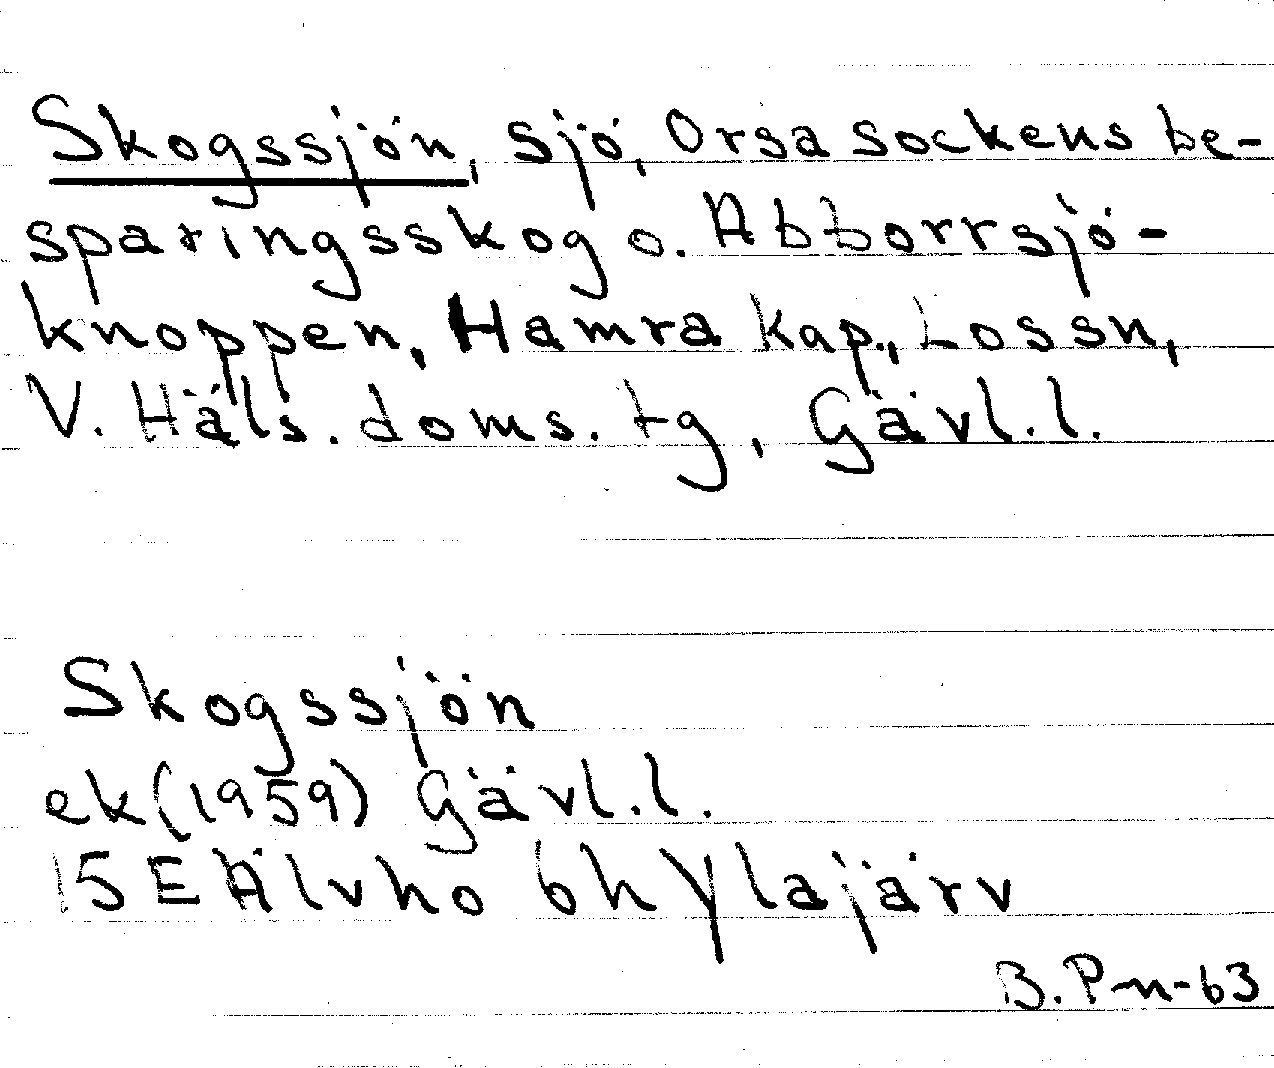 Skogssjön, sjö, Orsa sockens be-
sparingsskog o. Abborrsjö-
knoppen, Hamra kap., Lossn,
V. Häls. doms. tg, Gävl.l.
Skogssjön
ek(1959) Gävl.l.
15E Älvho 6h Ylajärv
B.P-n-63